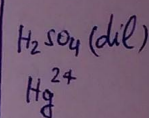 H₂SO₄ (dil)
Hg²⁺